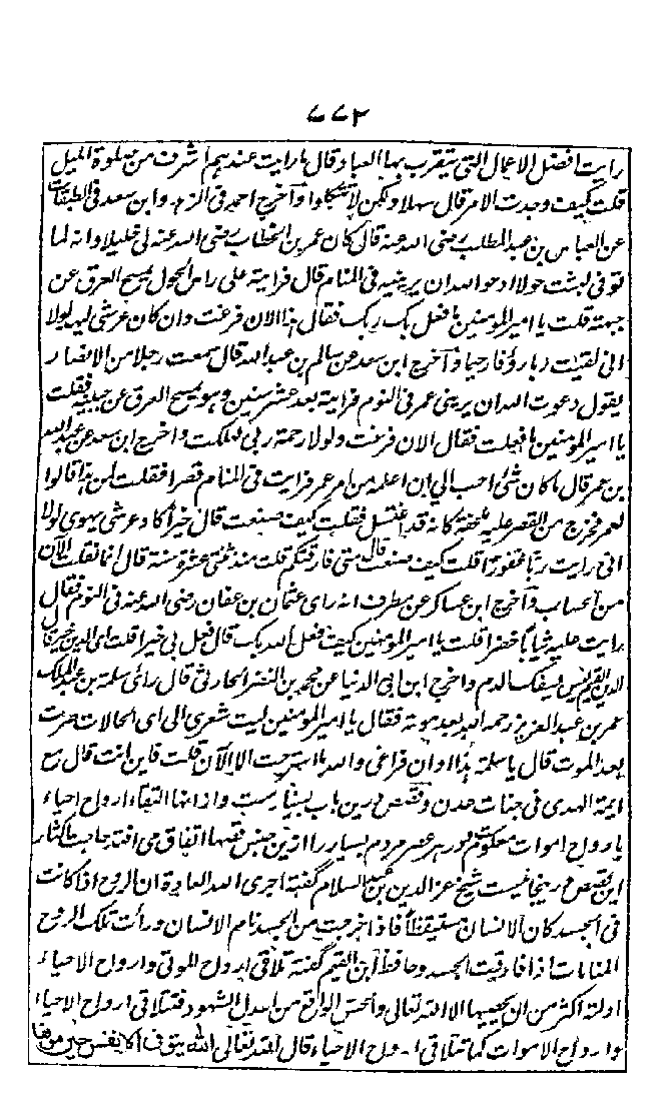 ۷۷۲
رایت افضل الاعمال التی یتقرب بها العباد قال ما رایت عندهم اشرف من صلوة اللیل
قلت کیف وجدت الامر قال سهلا ولکن لا تتکلوا وآخرج احمد فی الزهد وابن سعد فی الطبقات
عن العباس بن عبد المطلب رضی الله عنه قال کان عمر بن الخطاب رضی الله عنه لی خلیلا وانه لما
توفی لبثت حولا ادعو الله ان یرینیه فی المنام قال فرایته علی راس الحول یمسح العرق عن
جبهته قلت یا امیر المؤمنین ما فعل بک ربک فقال هذا الان فرغت وان کان عرشی لیهد لولا
انی لقیت ربا رؤفا رحیما وآخرج ابن سعد عن سالم بن عبد الله قال سمعت رجلا من الانصار
یقول دعوت الله ان یرینی عمر فی النوم فرایته بعد عشر سنین وهو یمسح العرق عن جبینه فقلت
یا امیر المؤمنین ما فعلت فقال الان فرغت ولولا رحمة ربی لهلکت واخرج ابن سعد عن عبد الله
بن عمر قال ما کان شئ احب الی ان اعلمه من امر عمر فرایت فی المنام قصرا فقلت لمن هذا قالوا
لعمر فخرج من القصر علیه ملحفة کانه قد اغتسل فقلت کیف صنعت قال خیرا کاد عرشی یهوی لولا
انی رایت ربا غفورا قلت کیف صنعت قال متی فارقتکم قلت منذ ثنتی عشرة سنة قال انما انفلت الآن
من الحساب وآخرج ابن عساکر عن مطرف انه رای عثمان بن عفان رضی الله عنه فی النوم فقال
رایت علیه ثیابا خضرا قلت یا امیر المؤمنین کیف فعل الله بک قال فعل بی خیرا قلت ای الدین خیر قال
الدین القیم لیس بسفک الدم واخرج ابن ابی الدنیا عن محمد بن النضر الحارثی قال رای سلمة بن عبد الملک
عمر بن عبد العزیز رحمه الله بعد موته فقال یا امیر المؤمنین لیت شعری الی ای الحالات صرت
بعد الموت قال یا سلمة هذا اوان فراغی والله ما استرحت الا الآن قلت فاین انت قال مع
ایمة الهدی فی جنات عدن وقصص درین باب بسیار ست واز انها التقاء ارواح احیاء
با ارواح اموات معلوم میشود ودر هر عصر مردم بسیار را ازین جنس قصها اتفاق می افتد حاجت باکثار
این قصص درینجا نیست شیخ عز الدین بن عبد السلام گفته اجری الله العادة ان الروح اذا کانت
فی الجسد کان الانسان مستیقظا فاذا خرجت من الجسد نام الانسان ورأت تلک الروح
المنامات اذا فارقت الجسد وحافظ ابن القیم گفته تلاقی ارواح الموتی وارواح الاحیاء
ادلته اکثر من ان یحصیها الا الله تعالی والحس والواقع من اعدل الشهود فتتلاقی ارواح الاحیاء
وارواح الاموات کما تتلاقی ارواح الاحیاء قال الله تعالی الله یتوفی الانفس حین موتها